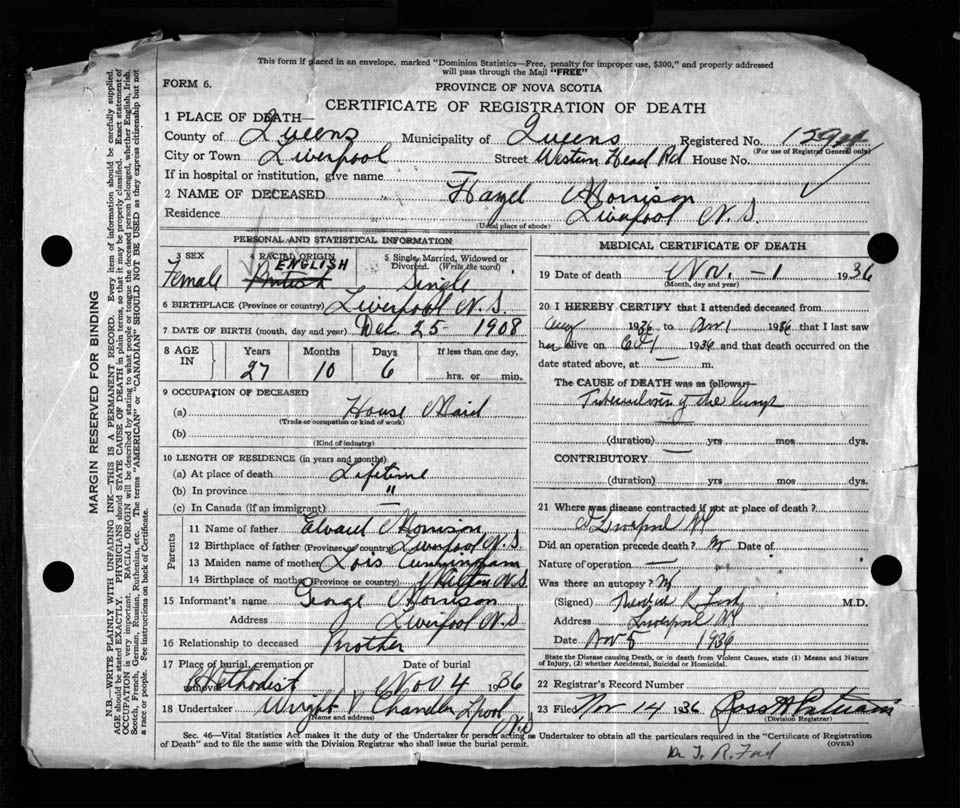 This form if placed in an envelope, marked "Dominion Statistics—Free, penalty for improper use, $300," and properly addressed
will pass through the Mail "FREE"
FORM 6.
PROVINCE OF NOVA SCOTIA
CERTIFICATE OF REGISTRATION OF DEATH
1 PLACE OF DEATH—
County of Queens Municipality of Queens Registered No.
(For use of Registrar General only)
City or Town Liverpool Street Western Head Rd House No.
If in hospital or institution, give name —
2 NAME OF DECEASED Hazel Morrison
Residence Liverpool N.S.
(Usual place of abode)
PERSONAL AND STATISTICAL INFORMATION
3 SEX 4 RACIAL ORIGIN 5 Single, Married, Widowed or
Divorced. (Write the word)
Female ENGLISH British Single
6 BIRTHPLACE (Province or country) Liverpool N.S.
7 DATE OF BIRTH (month, day and year) Dec 25 - 1908
8 AGE IN Years Months Days If less than one day,
27 10 6 hrs. or min.
9 OCCUPATION OF DECEASED
(a) House Maid
(Trade or occupation or kind of work)
(b)
(Kind of industry)
10 LENGTH OF RESIDENCE (in years and months)
(a) At place of death Lifetime
(b) In province "
(c) In Canada (if an immigrant) —
Parents
11 Name of father Edward Morrison
12 Birthplace of father (Province or country) Liverpool N.S.
13 Maiden name of mother Lois Cunningham
14 Birthplace of mother (Province or country) N.S.
15 Informant's name George Morrison
Address Liverpool N.S
16 Relationship to deceased
17 Place of burial, cremation or removal Date of burial
Methodist Nov 4 1936
18 Undertaker Wright V Chandler L'pool N.S
(Name and address)
MEDICAL CERTIFICATE OF DEATH
19 Date of death Nov. - 1 1936
(Month, day and year)
20 I HEREBY CERTIFY that I attended deceased from
Aug 1936 to Nov 1 1936 that I last saw
her alive on Oct 1936 and that death occurred on the
date stated above, at — m.
The CAUSE of DEATH was as follows:—
Tuberculosis of the lungs
(duration) yrs mos dys.
CONTRIBUTORY
(duration) yrs mos dys.
21 Where was disease contracted if not at place of death?
Liverpool NS
Did an operation precede death? No Date of
Nature of operation —
Was there an autopsy? No
(Signed) R. Ford M.D.
Address Liverpool NS
Date Nov 5 1936
State the Disease causing Death, or in death from Violent Causes, state (1) Means and Nature
of Injury, (2) whether Accidental, Suicidal or Homicidal.
22 Registrar's Record Number
23 Filed Nov 14 1936 Ross
(Division Registrar)
Sec. 46—Vital Statistics Act makes it the duty of the Undertaker or person acting as Undertaker to obtain all the particulars required in the "Certificate of Registration
of Death" and to file the same with the Division Registrar who shall issue the burial permit.
(OVER)
Dr. T. R. Ford
MARGIN RESERVED FOR BINDING
N.B.—WRITE PLAINLY WITH UNFADING INK—THIS IS A PERMANENT RECORD. Every item of information should be carefully supplied.
AGE should be stated EXACTLY. PHYSICIANS should STATE CAUSE OF DEATH in plain terms, so that it may be properly classified. Exact statement of
OCCUPATION is very important. RACIAL ORIGIN will be described by stating to what people or tongue the deceased person belonged, whether English, Irish,
Scotch, French, German, Russian, Ruthenian, etc. The terms "AMERICAN" or "CANADIAN" SHOULD NOT BE USED as they express citizenship but not
a race or people. See instructions on back of Certificate.